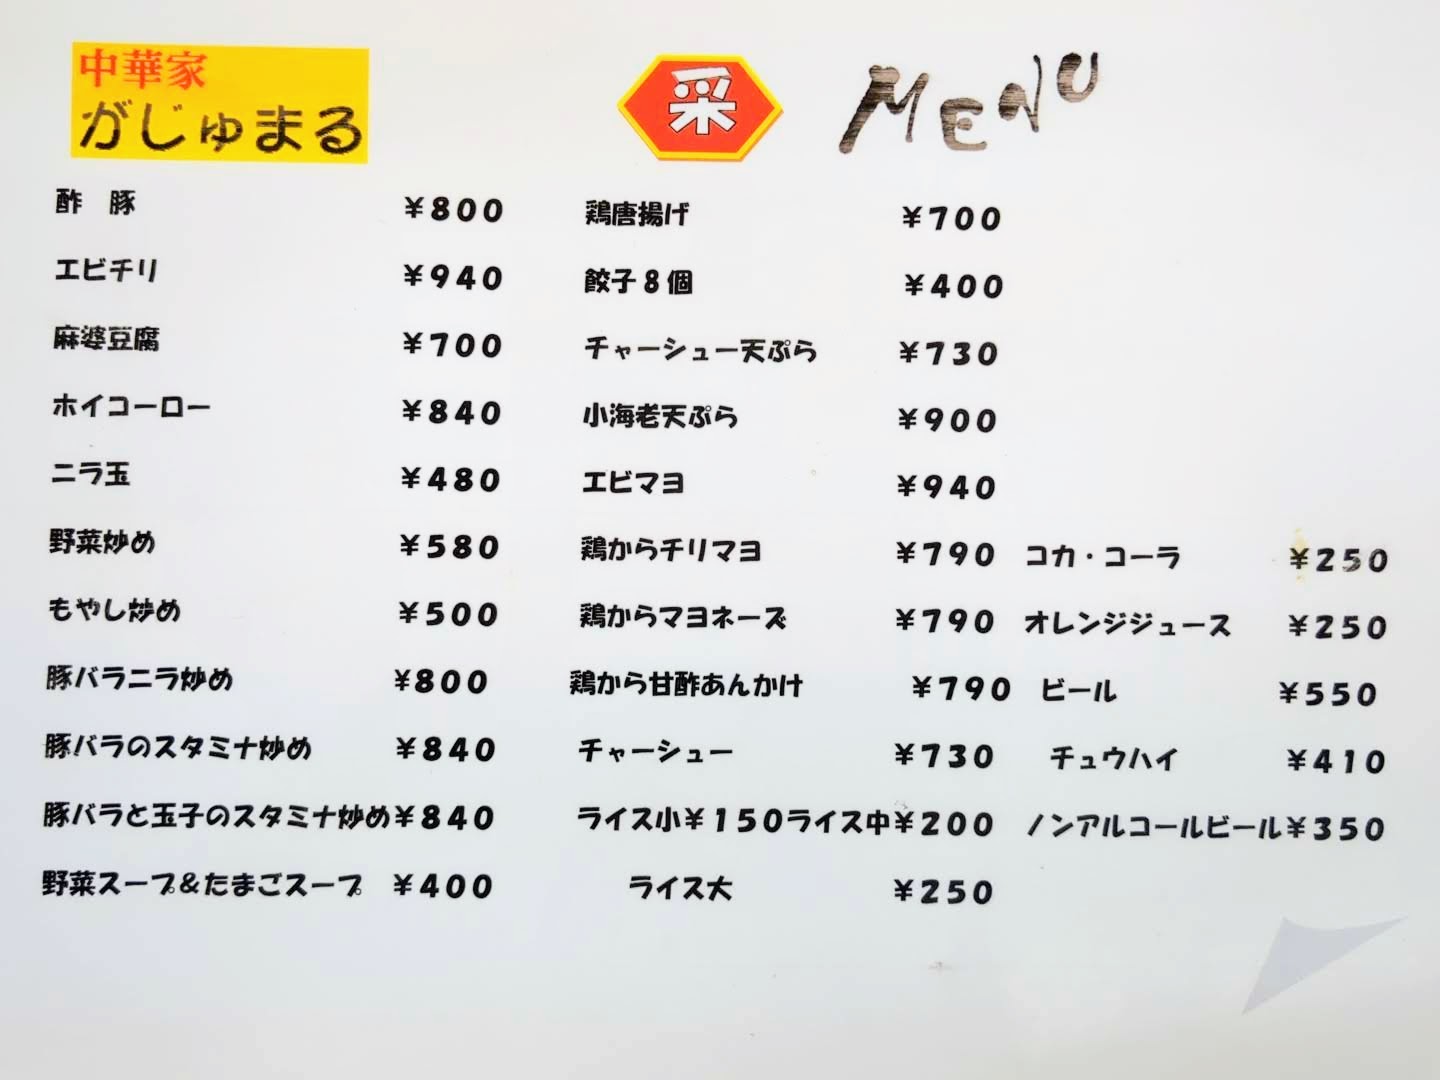 中華家
がじゅまる
采
MENU
酢 豚 ¥800
エビチリ ¥940
麻婆豆腐 ¥700
ホイコーロー ¥840
ニラ玉 ¥480
野菜炒め ¥580
もやし炒め ¥500
豚バラニラ炒め ¥800
豚バラのスタミナ炒め ¥840
豚バラと玉子のスタミナ炒め¥840
野菜スープ&たまごスープ ¥400
鶏唐揚げ ¥700
餃子8個 ¥400
チャーシュー天ぷら ¥730
小海老天ぷら ¥900
エビマヨ ¥940
鶏からチリマヨ ¥790
鶏からマヨネーズ ¥790
鶏から甘酢あんかけ ¥790
チャーシュー ¥730
ライス小¥150ライス中¥200
ライス大 ¥250
コカ・コーラ ¥250
オレンジジュース ¥250
ビール ¥550
チュウハイ ¥410
ノンアルコールビール¥350